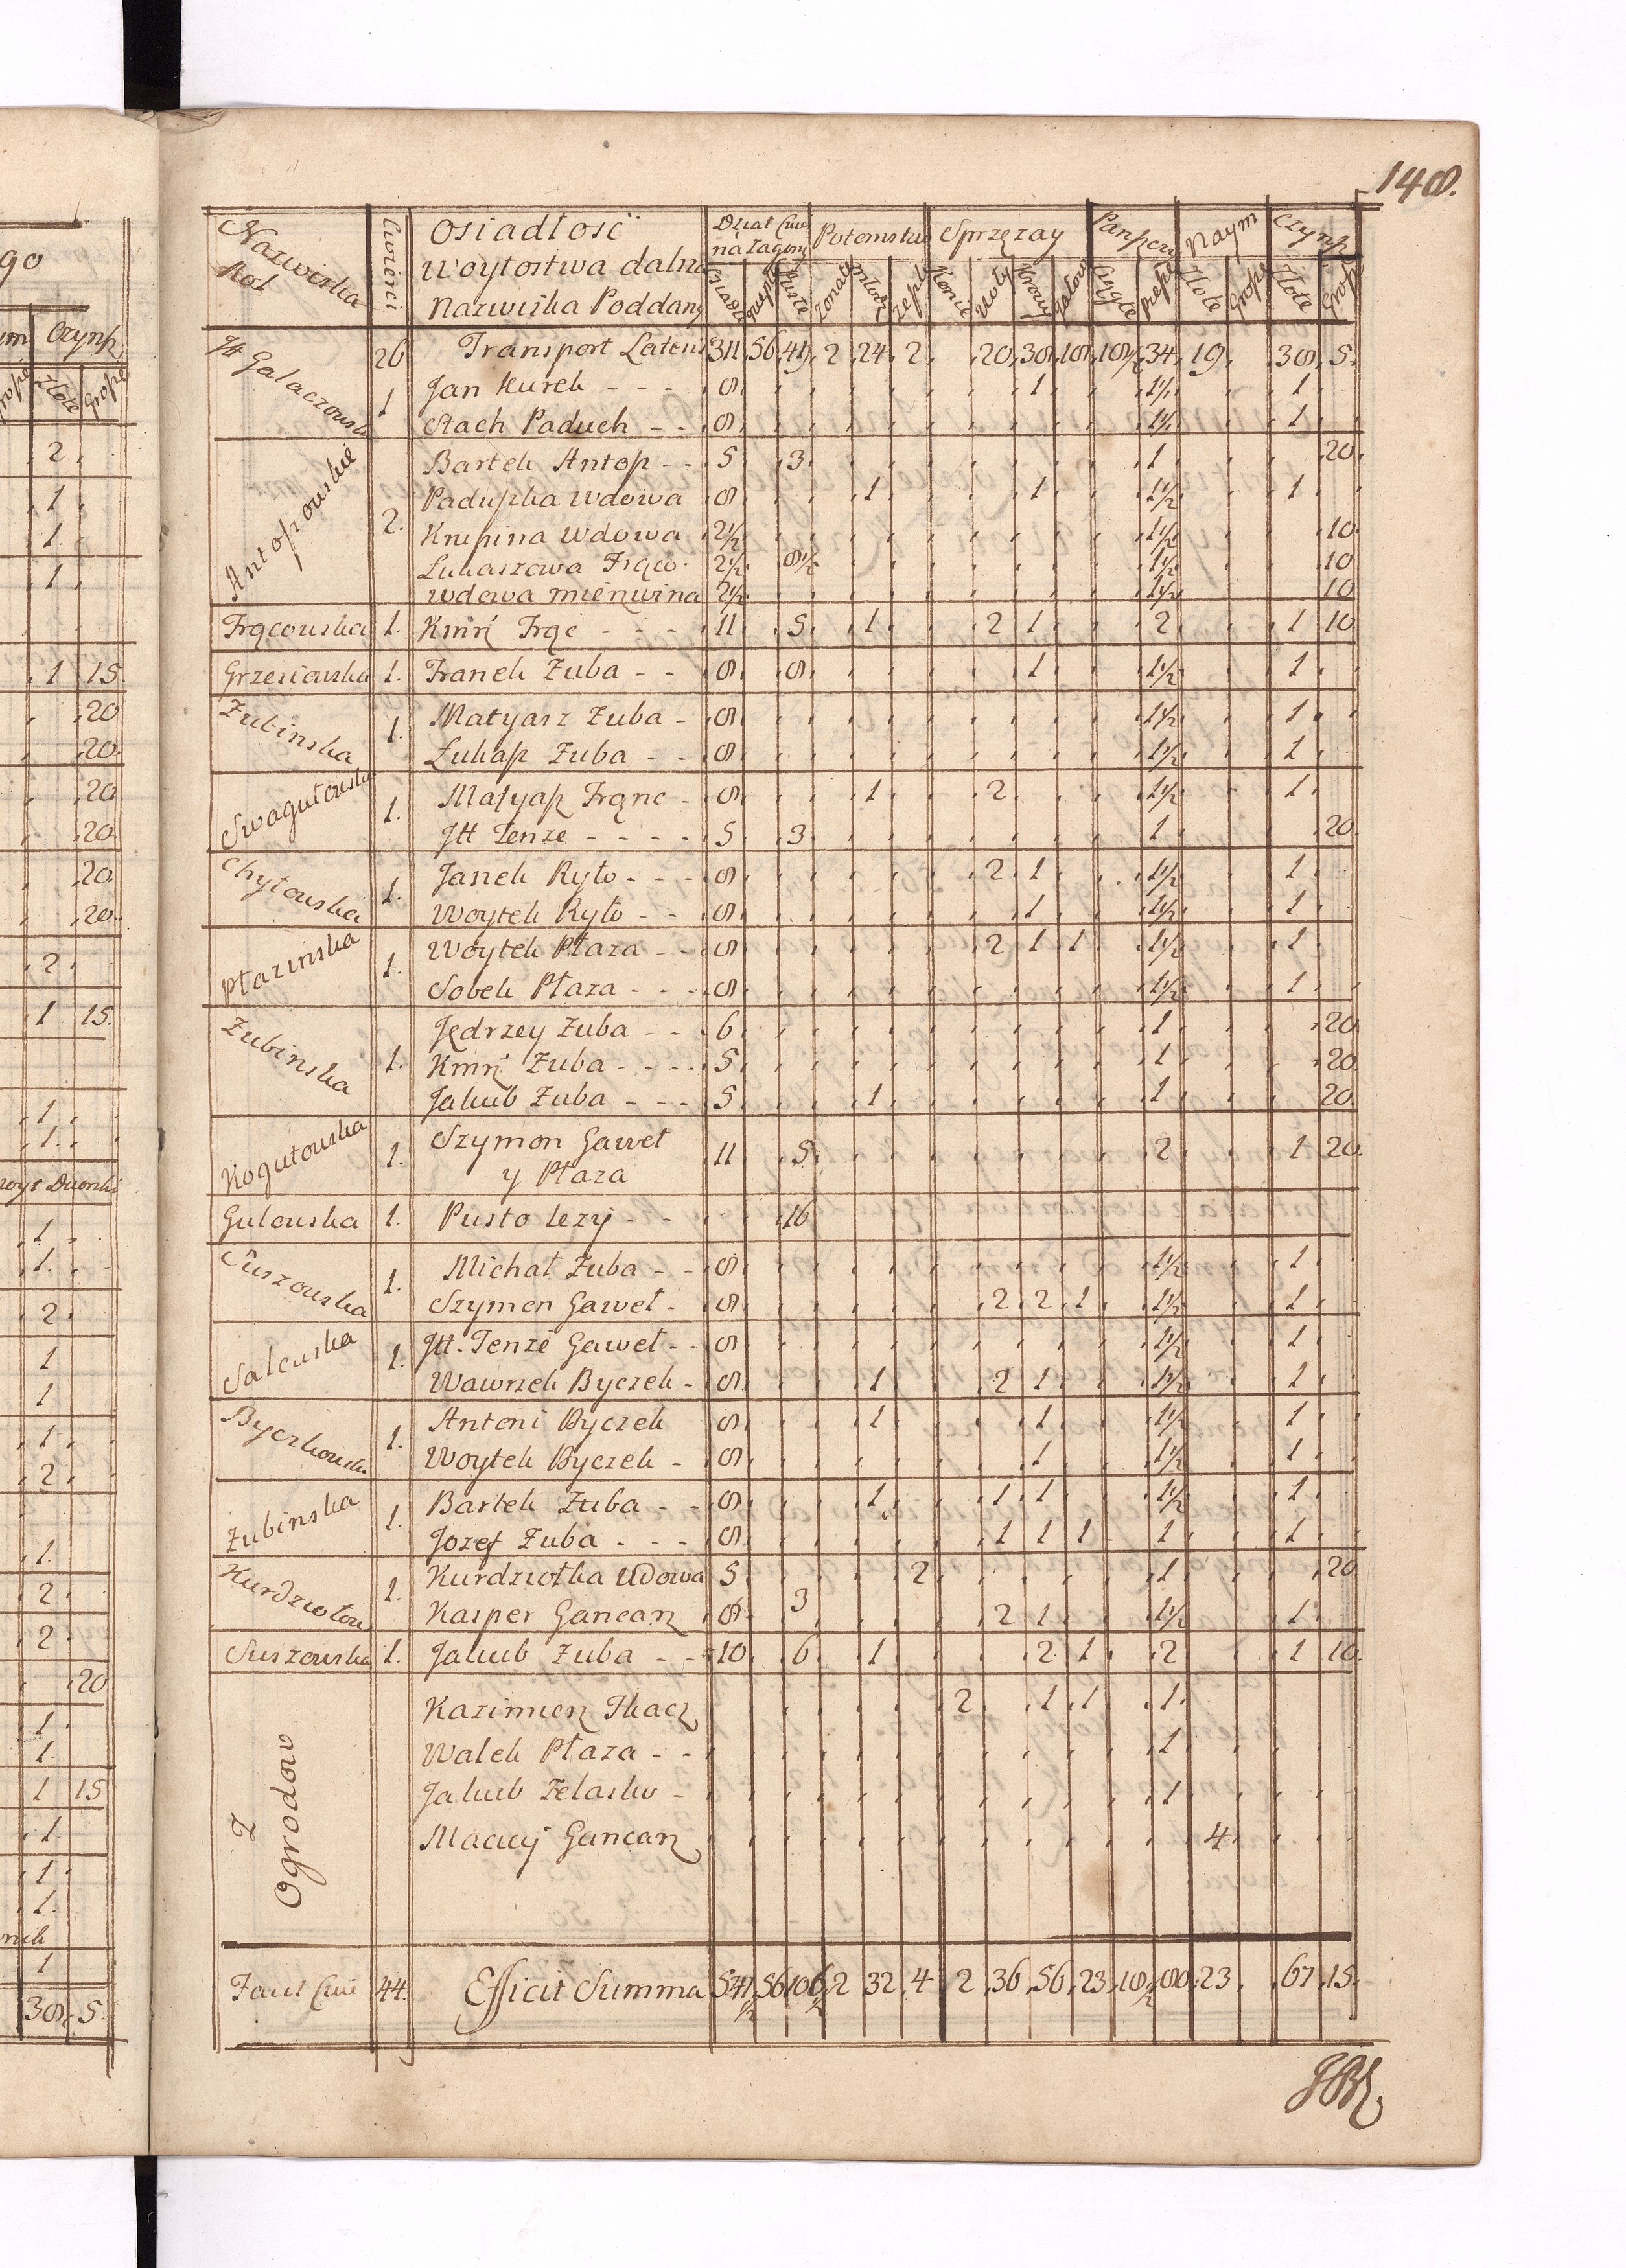 148.
Nazwiska Rol | Cwierci | Osiadłość Woytostwa dalsza Nazwiska Poddanÿ | Dział Cwie: na Zagony | Potomstwo | Sprzęzay | Panszczy | Naym | Czynsz
Osiadłe | Puste | Zonate | Młodz | Konie | Woły | Krowy | Jałow | Ciągłe | piesze | Złote | Grosze | Złote | Grosze
Jtt Galaczowska | 26 | Transport Lateris | 311 | 56 | 41 | 2 | 24 | 2 | 20 | 38 | 18 | 18½ | 34 | 19 | 38 | 5.
1 | Jan Kurek - - - | 8 | 1 | 1½ | 1
Stach Paduch - - | 8 | 1½ | 1
Antoszowskie | 2. | Bartek Antosz - - | 5 | 3 | 1 | 20
Paduszka Wdowa | 8 | 1 | 1 | 1½ | 1
Krupina Wdowa | 2½ | 1½ | 10
Łukaszowa Frąco. | 2½ | 8½ | 1½ | 10
Wdowa | 2½ | 1½ | 10
Frącowska | 1. | Kmꝛ Frąc - - - | 11 | 5 | 1 | 2 | 1 | 2 | 1 | 10
Grzesiowska | 1. | Franek Zuba - - | 8 | 8 | 1 | 1½ | 1
Zubinska | 1. | Matyasz Zuba - | 8 | 1½ | 1
Łukasz Zuba - - | 8 | 1½ | 1
Swagutowska | 1. | Matyasz Frąnc - | 8 | 1 | 2 | 1½ | 1
Jtt Tenze - - - - | 5 | 3 | 1 | 20
Chytowska | 1. | Janek Ryło - - - | 8 | 2 | 1 | 1½ | 1
Woytek Ryło - - | 8 | 1 | 1½ | 1
Płazinska | 1. | Woytek Płaza - - | 8 | 2 | 1 | 1 | 1½ | 1
Sobek Płaza - - - | 8 | 1½ | 1
Zubinska | 1. | Jędrzey Zuba - - | 6 | 1 | 20
Kmꝛ Zuba - - - - | 5 | 1 | 20
Jakub Zuba - - - | 5 | 1 | 1 | 20
Kogutowska | 1. | Szymon Gaweł | 11 | 5 | 2 | 1 | 20
y Płaza
Gulowska | 1. | Pusto lezy - - | 16
Cuszowska | 1. | Michał Zuba - - | 8 | 1½ | 1
Szymon Gaweł - | 8 | 2 | 2 | 1 | 1½ | 1
Salowska | 1. | Jtt. Tenze Gaweł - - | 8 | 1½ | 1
Wawrzek Byczek - | 8 | 1 | 2 | 1 | 1½ | 1
Byczkowska | 1. | Antoni Byczek | 8 | 1 | 1 | 1½ | 1
Woytek Byczek - | 8 | 1 | 1½ | 1
Zubinska | 1. | Bartek Zuba - - | 8 | 1 | 1 | 1 | 1½ | 1
Jozef Zuba - - - | 8 | 1 | 1 | 1 | 1 | 1
Kurdziołow | 1. | Kurdziołka Wdowa | 5 | 2 | 1 | 20
Kasper Gancarz | 8 | 3 | 2 | 1 | 1½ | 1
Suszowska | 1. | Jakub Zuba - - | 10 | 6 | 1 | 2 | 1 | 2 | 1 | 10
Z Ogrodow | Kazimierz Tkacz | 2 | 1 | 1 | 1
Walek Płaza - - | 1
Jakub Zelasko - | 1
Maciey Gancarz | 4
Facit Cwie | 44. | Efficit Summa | 541½ | 56 | 106½ | 2 | 32 | 4 | 2 | 36 | 56 | 23 | 18½ | 80 | 23 | 67 | 15.
go
Czynsz
Złote Grosze
2
1
1
1
1 15.
20
20
20
20
20
20
2
1 15.
1
1
Dworski
1
1
2
1
1
1
2
1
2
2
20
1
1
1 15
1
1
1
1
38 5.